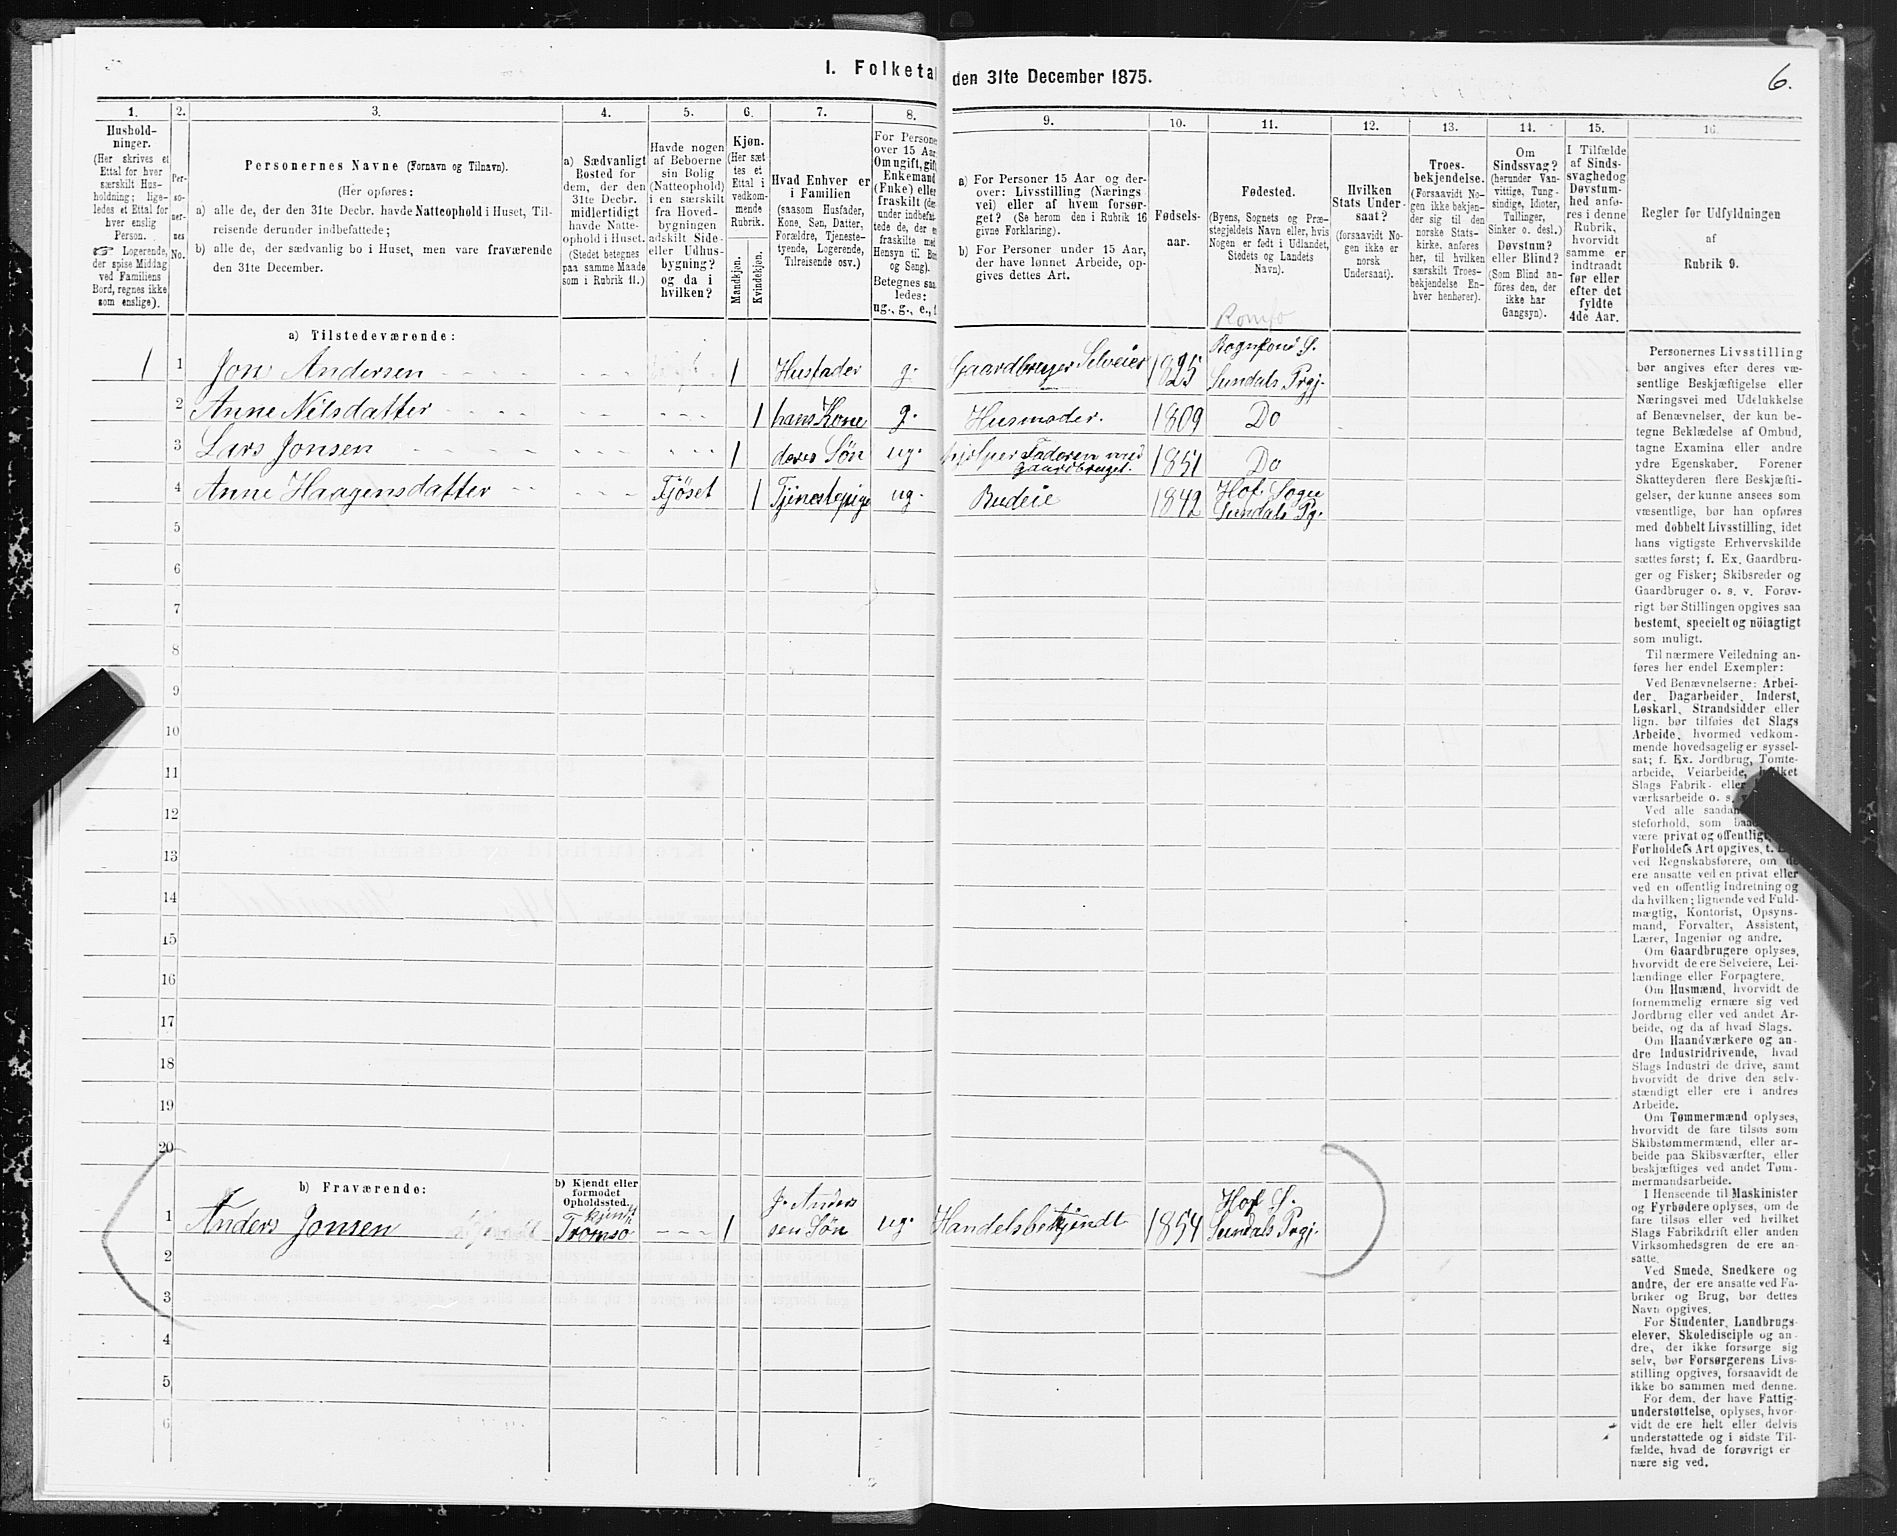 I. Folketal den 31te December 1875.
6.
1.
Hushold-
ninger.
(Her skrives et
Ettal for hver
særskilt Hus-
holdning; lige-
ledes et Ettal for
hver enslig
Person.
☞ Logerende,
der spise Middag
ved Familiens
Bord, regnes ikke
som enslige).
2.
Per-
so-
ner-
nes
No.
3.
Personernes Navne (Fornavn og Tilnavn).
(Her opføres:
a) alle de, der den 31te Decbr. havde Natteophold i Huset, Til-
reisende derunder indbefattede;
b) alle de, der sædvanlig bo i Huset, men vare fraværende
den 31te December.
4.
a) Sædvanligt
Bosted for
dem, der den
31te Decbr.
midlertidigt
havde Natte-
ophold i Huset.
(Stedet betegnes
paa samme Maade
som i Rubrik 11.)
5.
Havde nogen
af Beboerne
sin Bolig
(Natteophold)
i en særskilt
fra Hoved-
bygningen
adskilt Side-
eller Udhus-
bygning?
og da i
hvilken?
6.
Kjøn.
(Her sæt
tes et
Ettal i
vedkom-
mende
Rubrik.
Mandekjøn.
Kvindekjøn.
7.
Hvad Enhver er
i Familien
(saasom Husfader,
Kone, Søn, Datter,
Forældre, Tjeneste-
tyende, Logerende,
Tilreisende osv.)
8.
For Persone
over 15 Aar
Om ugift, gift
Enkemand
(Enke) eller
fraskilt (der-
under indbefat-
tede de, der e
fraskilte med
Hensyn til Bor
og Seng).
Betegnes saa
ledes:
ug., g., e., f.
9.
a) For Personer 15 Aar og der-
over: Livsstilling (Nærings
vei) eller af hvem forsør-
get? (Se herom den i Rubrik 16
givne Forklaring).
b) For Personer under 15 Aar,
der have lønnet Arbeide, op-
gives dettes Art.
10.
Fødsels-
aar.
11.
Fødested.
(Byens, Sognets og Præ-
stegjeldets Navn eller, hvis
Nogen er født i Udlandet,
Stedets og Landets
Navn).
12.
Hvilken
Stats Under-
saat?
(forsaavidt No-
gen ikke er
norsk
Undersaat).
13.
Troes-
bekjendelse.
(Forsaavidt No-
gen ikke bekjen-
der sig til den
norske Stats-
kirke, anføres
her, til hvilken
særskilt Troes-
bekjendelse En-
hver henhører).
14.
Om
Sindssvag?
(herunder Van-
vittige, Tung-
sindige, Idioter,
Tullinger,
Sinker o. desl.)
Døvstum?
eller Blind?
(Som Blind an-
föres den, der
ikke har
Gangsyn).
15.
I Tilfælde
af Sinds-
svaghed og
Døvstum-
hed anfø-
res i denne
Rubrik,
hvorvidt
samme er
indtraadt
før eller
efter det
fyldte
4de Aar.
16.
Regler før Udfyldningen
af
Rubrik 9.
a) Tilstedeværende:
Romfo
1 1 Jon Andersen 1 Husfader g. Gaardbruger Selveier 1825 Romfo S. Sundals Prgj.
2 Anne Nilsdatter 1 hans Kone g. Husmoder. 1809 Do
3 Lars Jonsen 1 deres Søn ug. hjelper Faderen med gaardbruget. 1851 Do
4 Anne Haagensdatter Fjöset 1 Tjenestepige ug. Budeie 1842 Hof Sogn Sundals Pg.
5
6
7
8
9
10
11
12
13
14
15
16
17
18
19
20
b) Fraværende:
b) Kjendt eller
formodet
Opholdssted.
1 Anders Jonsen kjendt Tromsø 1 J. Andersen Søn ug. Handelsbetjendt 1854 Hof S. Sundals Prgj.
2
3
4
5
6
Personernes Livsstilling
bør angives efter deres væ-
sentlige Beskjæftigelse eller
Næringsvei med Udelukkelse
af Benævnelser, der kun be-
tegne Beklædelse af Ombud,
tagne Examina eller andre
ydre Egenskaber. Forener
Skatteyderen flere Beskjæfti-
gelser, der kunne ansees som
væsentlige, bør han opføres
med dobbelt Livsstilling, idet
hans vigtigste Erhvervskilde
sættes først; f. Ex. Gaardbru-
ger og Fisker; Skibsreder og
Gaardbruger o. s. v. Forøv-
rigt bør Stillingen opgives saa
bestemt, specielt og nöiagtigt
som muligt.
Til nærmere Veiledning an-
føres her endel Exempler:
Ved Benævnelserne: Arbei-
der, Dagarbeider, Inderst,
Løskarl, Strandsidder eller
lign. bør tilføies det Slags
Arbeide, hvormed vedkom-
mende hovedsagelig er syssel-
sat; f. Ex. Jordbrug, Tomte-
arbeide, Veiarbeide, hvilket
Slags Fabrik- eller
værksarbeide o. s. v.
Ved alle saadan
steforhold, som baa
være privat og offentligt,
Forholdets Art opgives, t. Ex.
ved Regnskabsførere, om de
ere ansatte ved en privat eller
ved en offentlig Indretning og
da hvilken; lignende ved Fuld-
mægtig, Kontorist, Opsyns-
mand, Forvalter, Assistent,
Lærer, Ingeniør og andre.
Om Gaardbrugere oplyses,
hvorvidt de ere Selveiere, Lei-
lændinge eller Forpagtere.
Om Husmænd, hvorvidt de
fornemmelig ernære sig ved
Jordbrug eller ved andet Ar-
beide, og da af hvad Slags.
Om Haandværkere og an-
dre Industridrivende, hvad
Slags Industri de drive, samt
hvorvidt de drive den selv-
stændigt eller ere i andres
Arbeide.
Om Tømmermænd oplyses,
hvorvidt de fare tilsøs som
Skibstømmermænd, eller ar-
beide paa Skibsværfter, eller
beskjæftiges ved andet Tøm-
mermandsarbeide.
I Henseende til Maskinister
og Fyrbødere oplyses, om de
fare tilsøs eller ved hvilket
Slags Fabrikdrift eller anden
Virksomhedsgren de ere an-
satte.
Ved Smede, Snedkere og
andre, der ere ansatte ved Fa-
briker og Brug, bør dettes
Navn opgives.
For Studenter, Landbrugs-
elever, Skoledisciple og an-
dre, der ikke forsørge sig
selv, bør Forsørgerens Livs-
stilling opgives, forsaavidt de
ikke bo sammen med denne.
For dem, der have Fattig-
understøttelse, oplyses, hvor-
vidt de ere helt eller delvis
understøttede og i sidste Til-
fælde, hvad de forøvrigt er
nære sig ved.